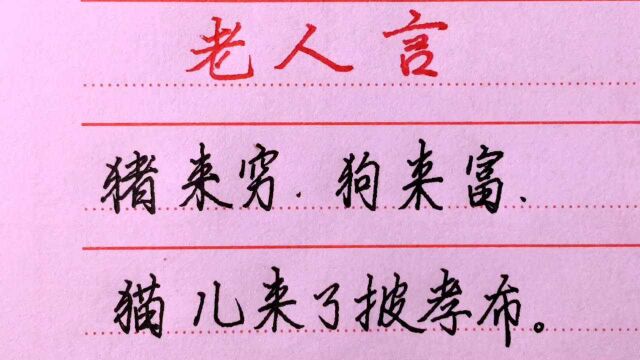 老人言
猪来穷.狗来富.
猫儿来了披孝布。